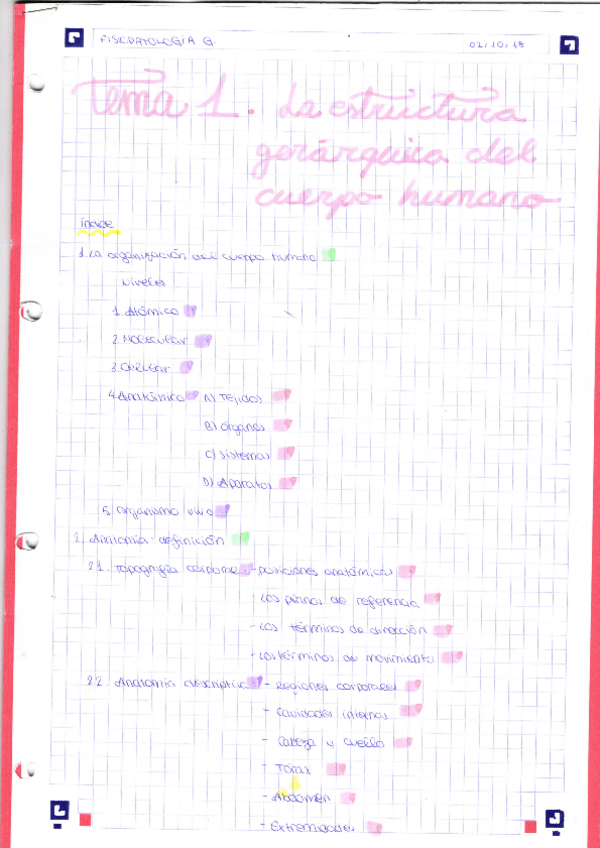 FISIOPATOLOGIA G. 02/10/18
Tema 1. La estructura
gerárquica del
cuerpo humano
índice
1. La organización del cuerpo humano
Niveles
1. Atómico
2. Molecular
3. Celular
4. Anatómico A) Tejidos
B) Órganos
C) Sistemas
D) Aparatos
5. Organismo vivo
2. Anatomia definición
2.1. Topografía corporal - posiciones anatómicas
- Los planos de referencia
- Los términos de dirección
- Los términos de movimiento
2.2. Anatomía descriptiva - Regiones corporales
- Cavidades internas
- Cabeza y cuello
- Torax
- Abdomen
- Extremidades